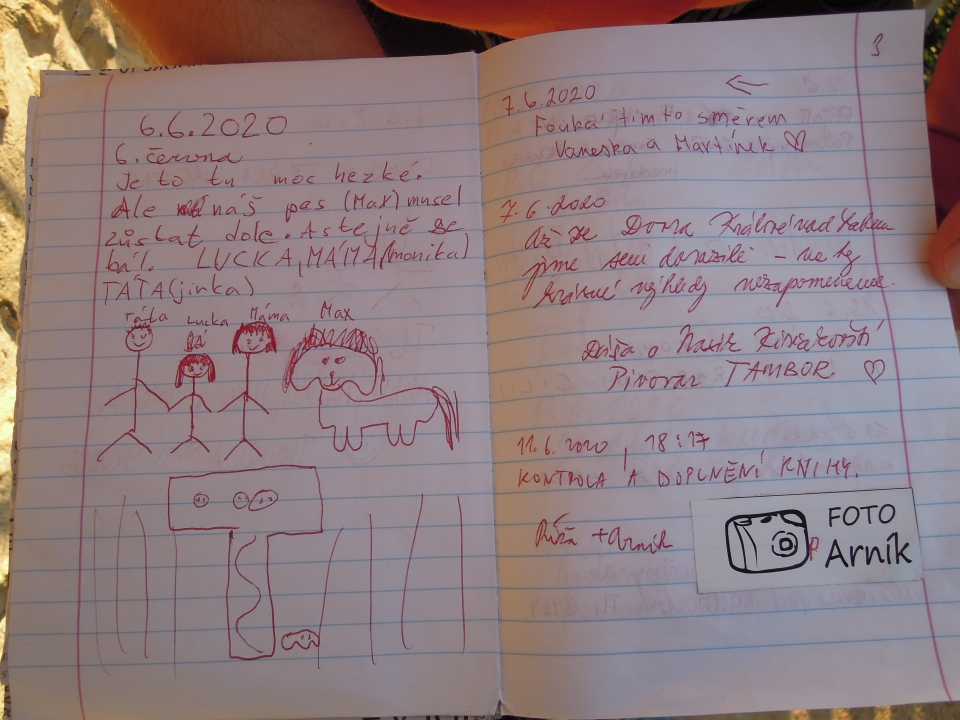 6.6.2020
6. června
Je to tu moc hezké.
Ale náš pes (Max) musel
zůstat dole. A stejně se
bál. LUCKA, MÁMA (monika)
TÁTA (jirka)
Táta Lucka Máma Max
3
7.6.2020 ←
Fouká tímto směrem
Vaneska a Martínek ♡
7.6.2020
Až ze Dvora Králové nad Labem
jsme sem dorazili – na ty
krásné výhledy nezapomeneme.
Pivovar TAMBOR ♡
11.6.2020, 18:17
KONTROLA A DOPLNĚNÍ KNIHY.
Růža + Arník
FOTO
Arník